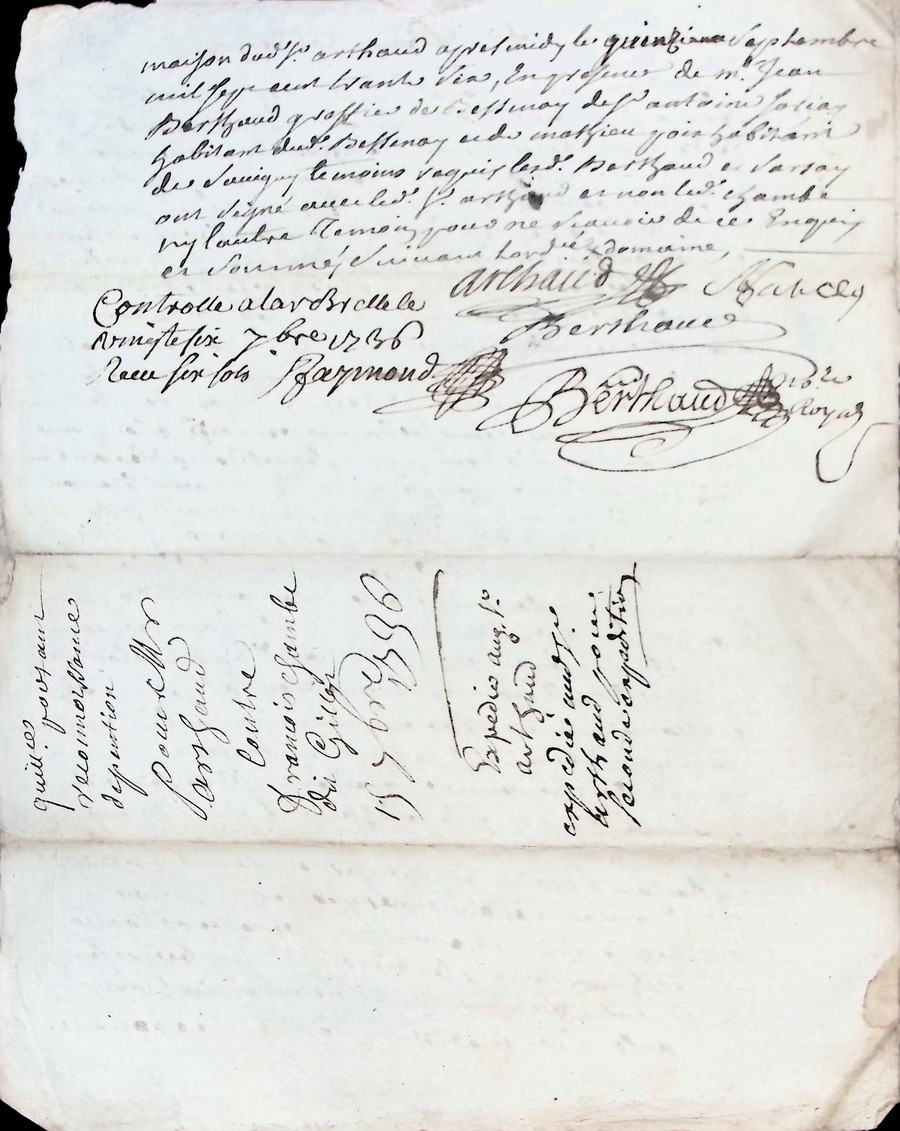 maison dud. Sr. arthaud apres midy le quinzieme Septembre
mil sept cent trante six, En presence de me. Jean
Berthaud greffier de Bessenay de Sr. antoine
habitant dud. Bessenay et de mathieu habitant
de Savigny temoins requis lesd. Berthaud et
ont signé avec led. Sr. arthaud et non led. chambe
ny lautre Temoin pour ne scavoir de ce Enquis
et Sommés Suivant Lord.ce domaine,
arthaud
Berthaud
Controlle alarbrelle le
vingt six 7bre 1736
Receu six sols Raymond
Berthaud no.re
Royal
quill.
reconoissance
Pour Mr
arthaud
Contre
francois chambe
dit Gillet
15 7bre 1736
Expedié aud. Sr.
arthaud
expedié aud. Sr.
arthaud pour
seconde expedition